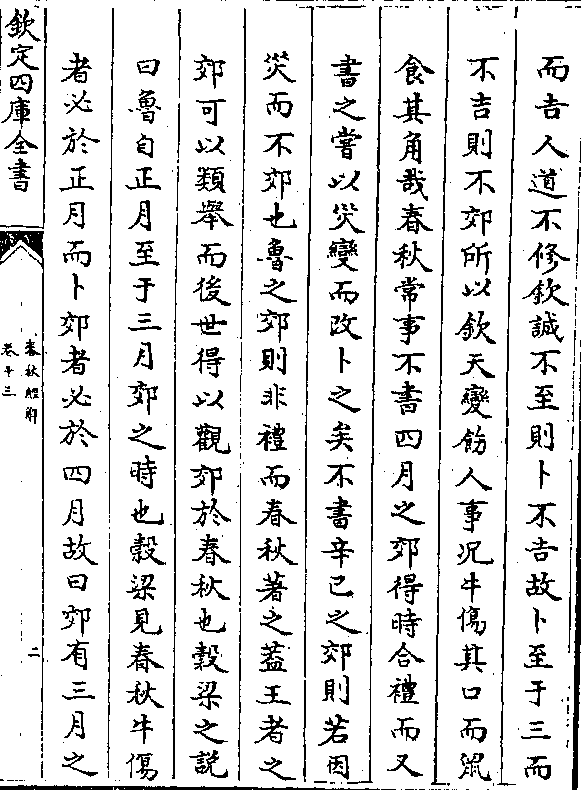 而吉人道不修欽誠不至則卜不吉故卜至于三而
不吉則不郊所以欽天變飭人事況牛傷其口而鼠
食其角哉春秋常事不書四月之郊得時合禮而又
書之嘗以災變而改卜之矣不書辛巳之郊則若因
災而不郊也魯之郊則非禮而春秋著之葢王者之
郊可以類舉而後世得以觀郊於春秋也榖梁之説
曰魯自正月至于三月郊之時也榖梁見春秋牛傷
者必於正月而卜郊者必於四月故曰郊有三月之
欽定四庫全書
春秋經解
卷十三
二